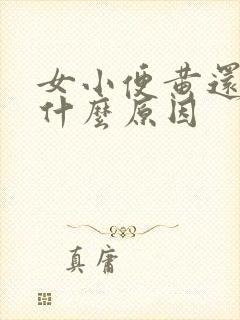 女小便黃還
什麼原因
真庸